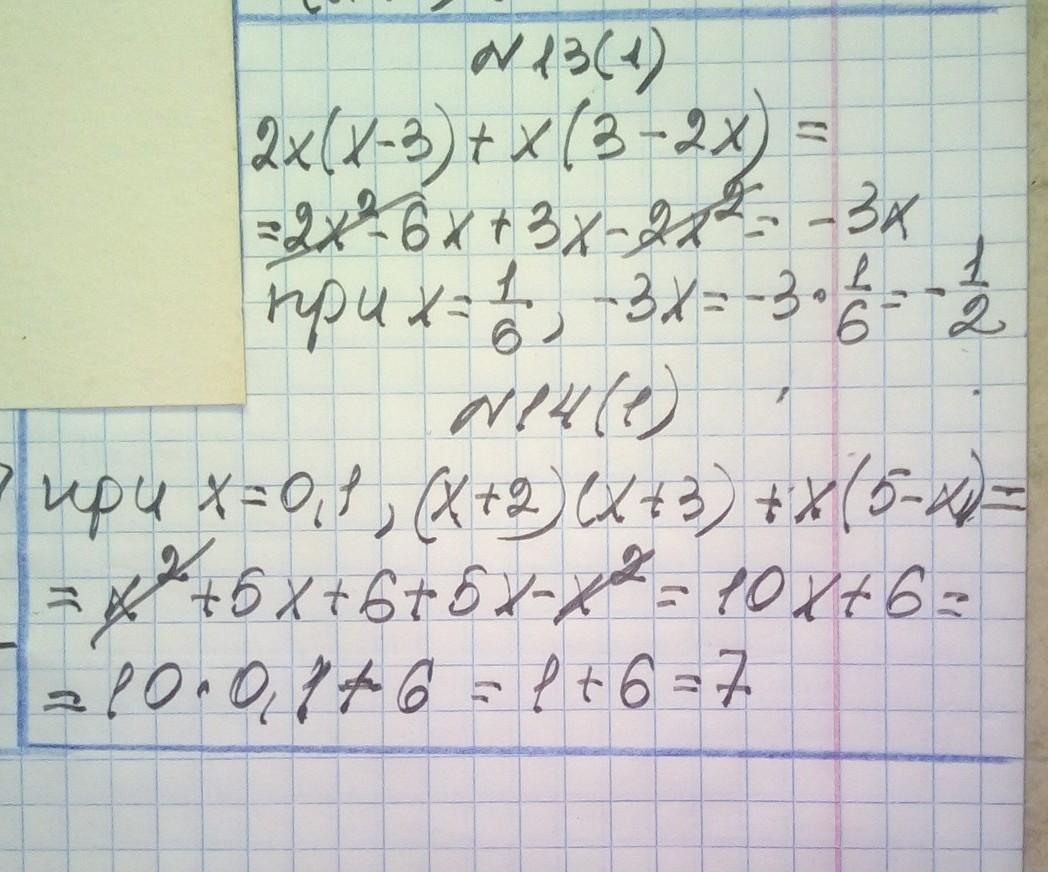 №13(1)
2x(x-3)+x(3-2x)=
=2x²-6x+3x-2x²=-3x
при x=1/6, -3x=-3·1/6=-1/2
№14(1)
при x=0,1, (x+2)(x+3)+x(5-x)=
=x²+5x+6+5x-x²=10x+6=
=10·0,1+6=1+6=7